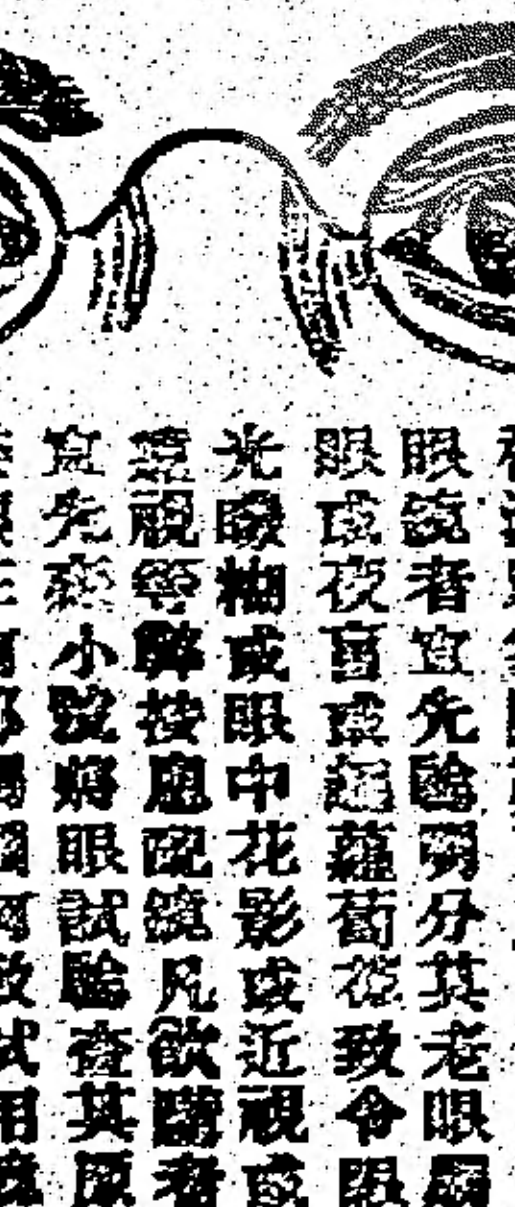 眼鏡者宜先驗明分其老眼
眼或夜盲或起蘿蔔花致令眼
光矇糊或眼中花影或近視或
遠視等弊按應配鏡凡欲購者
宜先來小號將眼試驗查其原